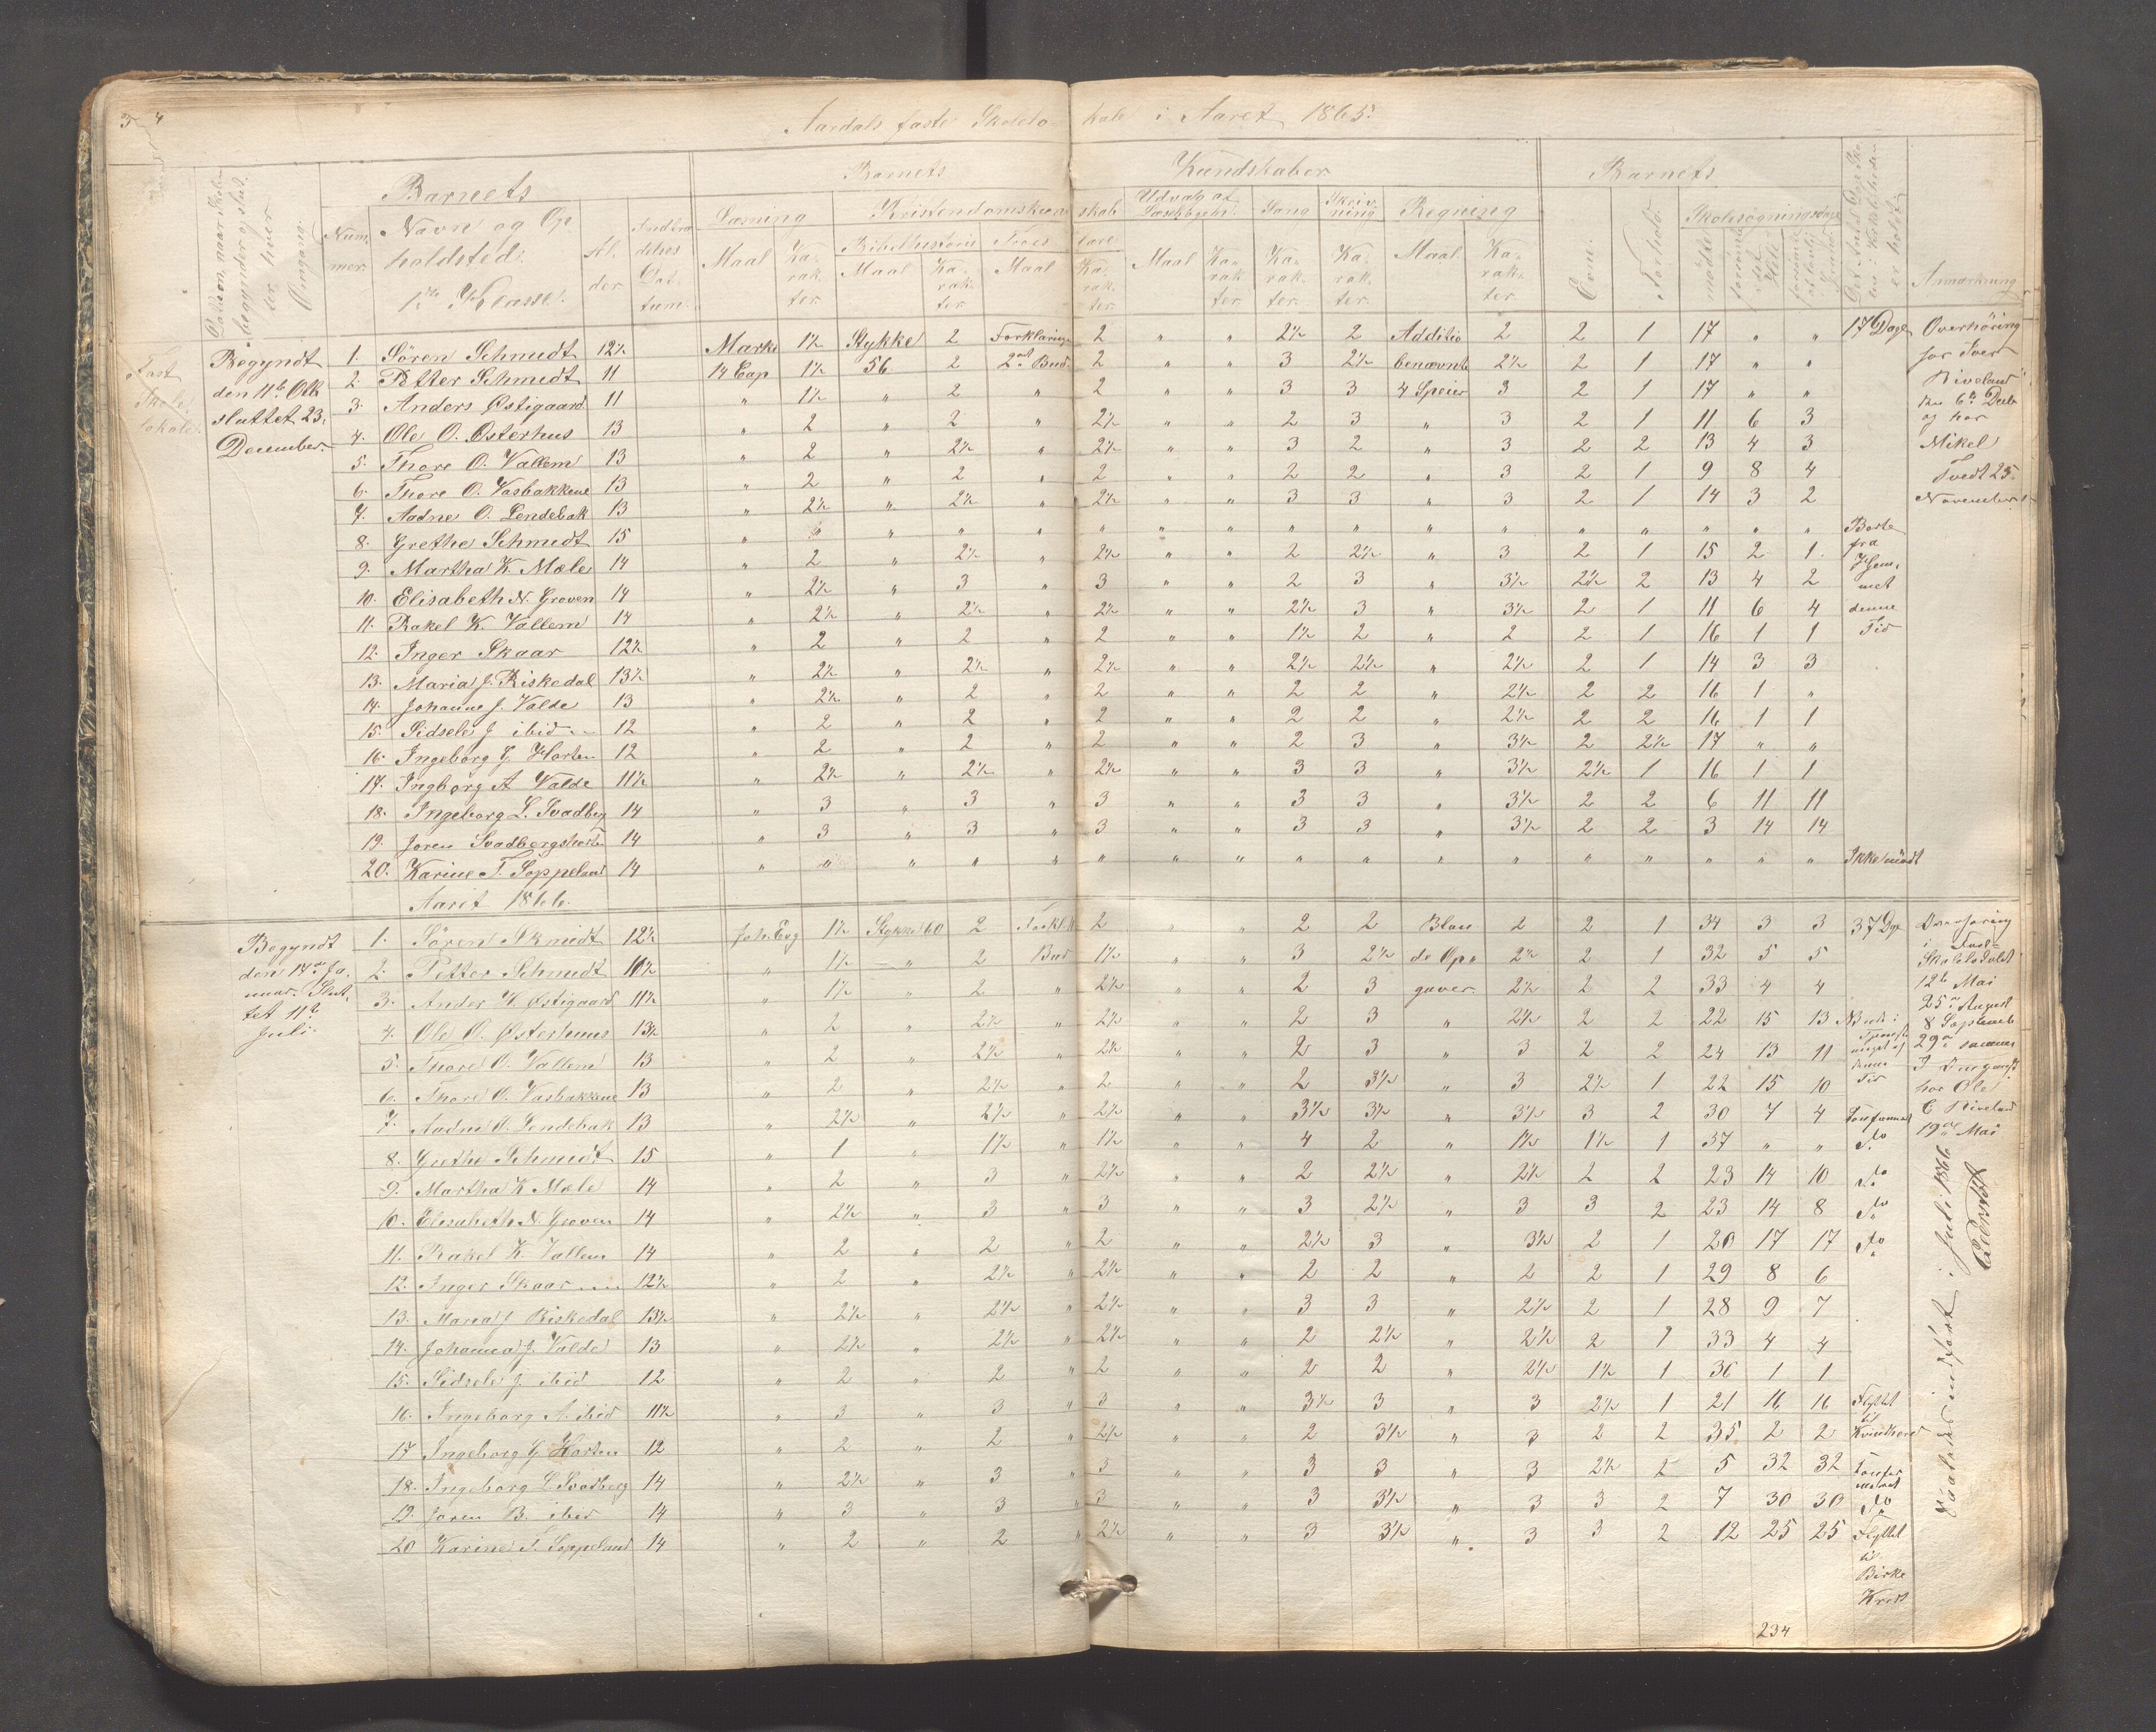 Aardals faste Skolelokale i Aaret 1865.
Barnets Barnets Kundskaber Barnets
Datum, naar Skolen begynder og sluttes hver Omgang.
Nummer. Navn og Opholdsted. 1ste Klasse. Alder Indtrædelses Datum.
Læsning Maal Karakter Kristendomskundskab Bibelhistorie Maal Karakter Troeslære Maal Karakter Udvalg af Læsebogen. Maal Karakter Sang Karakter Skrivning Karakter Regning Maal Karakter
Evne. Forhold. Skolesøgningsdage mødte forsømte i det Hele forsømte af lovlig Grund Det Antal Dage Skolen i Virkeligheden er holdt Anmærkning
Fast Skolelokale. Begyndt den 11te Okt sluttet 23. December.
1. Søren Schmidt 12½ Marki 1½ Stykke 2 Forklaring 2 " " 2½ 2 Additio 2 2 1 17 " " 17 Dage
2. Petter Schmidt 11 14 Cap 1½ 56 2 2det Bud 2 " " 3 2½ benævnte 2½ 2 1 17 " "
3. Anders Østigaard 11 " 1½ " 2 " 2 " " 3 3 4 Speier 3 2 1 17 " "
4. Ole O. Østerhus 13 " 2 " 2 " 2½ " " 2 3 " 3 2 1 11 6 3
5. Thore O. Vallem 13 " 2 " 2½ " 2½ " " 3 2 " 3 2 2 13 4 3
6. Thore O. Vasbakkene 13 " 2 " 2 " 2 " " 2 2 " 3 2 1 9 8 4
7. Aadne O. Lendebak 13 " 2½ " 2½ " 2½ " " 3 3 " 3 2 1 14 3 2
8. Grethe Schmidt 15 " " " " " " " " " " " " " " " " " Borte fra Hjemmet denne Tid
9. Martha K. Mæle 14 " 2 " 2½ " 2½ " " 2 2½ " 3 2 1 15 2 1
10. Elisabeth N. Groven 14 " 2½ " 3 " 3 " " 2 3 " 3½ 2½ 2 13 4 2
11. Rakel K. Vallem 14 " 2½ " 2½ " 2½ " " 2½ 3 " 3½ 2 1 11 6 4
12. Inger Skaar 12½ " 2 " 2 " 2 " " 1½ 2 " 2 2 1 16 1 1
13. Maria J. Riskedal 13½ " 2½ " 2½ " 2½ " " 2½ 2½ " 2½ 2 1 14 3 3
14. Johanne J. Valde 13 " 2½ " 2 " 2 " " 2 2 " 2½ 2 2 16 1 "
15. Sidsele J. ibid 12 " 2 " 2 " 2 " " 2 2 " 2½ 2 2 16 1 1
16. Ingeborg G. Horten 12 " 2 " 2 " 2 " " 2 3 " 3½ 2 2½ 17 " "
17. Ingborg A Valde 11½ " 2½ " 2½ " 2½ " " 3 3 " 3½ 2½ 1 16 1 1
18. Ingeborg L. Svadberg 14 " 3 " 3 " 3 " " 3 3 " 3½ 2 2 6 11 11
19. Joren Svadbergshorten 14 " 3 " 3 " 3 " " 3 3 " 3½ 2 2 3 14 14
20. Karine T. Soppeland 14 " " " " " " " " " " " " " " " " " Ikke mødt
Overhøring
hos Iver
Riveland
den 6te Decb
og hos
Mikel
Tvedt 25.
November.
Aaret 1866.
Begyndt den 14de Januar. Sluttet 11te Juli.
1. Søren Skmidt 12½ Joh. Evg 1½ Stykke 60 2 Forkl. 2 " " 2 2 Blan 2 2 1 34 3 3 37 Dage
2. Petter Schmidt 10½ " 1½ " 2 Bud 1½ " " 3 2½ de Op= 2½ 2 1 32 5 5
3. Ander K. Østigaard 11½ " 1½ " 2 " 2½ " " 2 3 gaver. 2½ 2 2 33 4 4
4. Ole O. Østerhuus 13½ " 2 " 2½ " 2½ " " 2 3 " 2½ 2 2 22 15 13
5. Thore O. Vallem 13 " 2 " 2½ " 2½ " " 2 3 " 3 2 2 24 13 11
6. Thore O. Vasbakkene 13 " 2 " 2½ " 2 " " 2 3½ " 3 2½ 1 22 15 10
7. Aadne O. Lendebak 13 " 2½ " 2½ " 2½ " " 3½ 3½ " 3½ 3 2 30 7 4 Confirmeret
8. Grethe Schmidt 15 " 1 " 1½ " 1½ " " 4 2 " 1½ 1½ 1 37 " " do
9. Martha K Mæle 14 " 2 " 3 " 2½ " " 2 2½ " 2½ 2 2 23 14 10 do
10. Elisabeth N. Groven 14 " 2½ " 3 " 3 " " 3 2½ " 3 3 2 23 14 8 do
11. Rakel K. Vallem 14 " 2 " 2 " 2 " " 2½ 3 " 3½ 2 1 20 17 17 do
12. Inger Skaar 12½ " 2 " 2½ " 2½ " " 2 2 " 2 2 1 29 8 6
13. Maria J Riskedal 13½ " 2½ " 2½ " 2½ " " 3 3 " 2½ 2 1 28 9 7
14. Johanna J. Valde 13 " 2½ " 2½ " 2½ " " 2 2½ " 2½ 2 1 33 4 4
15. Sidsele J. ibid 12 " 2 " 2 " 2 " " 2 2 " 2½ 1½ 1 36 1 1
16. Ingeborg A. ibid 11½ " 3 " 3 " 3 " " 3½ 3 " 3 2½ 1 21 16 16 Flyttet til Kvindherred
17 Ingeborg G Horten 12 " 2 " 2 " 2½ " " 2 3½ " 3 2 2 35 2 2
18. Ingeborg L Svadberg 14 " 2½ " 3 " 3 " " 3 3 " 3 2½ 2 5 32 32 Confirmeret
19. Joren B. ibid 14 " 3 " 3 " 3 " " 3 3½ " 3 3 2 7 30 30 do
20 Karine T. Soppeland 14 " 2 " 2 " 2½ " " 3 3½ " 3 3 2 12 25 25 Flyttet til Birke
12te Mai
25de August
8 Septemb
29de
hos Ole
C Riveland
19de Mai
i Juli 1866
234